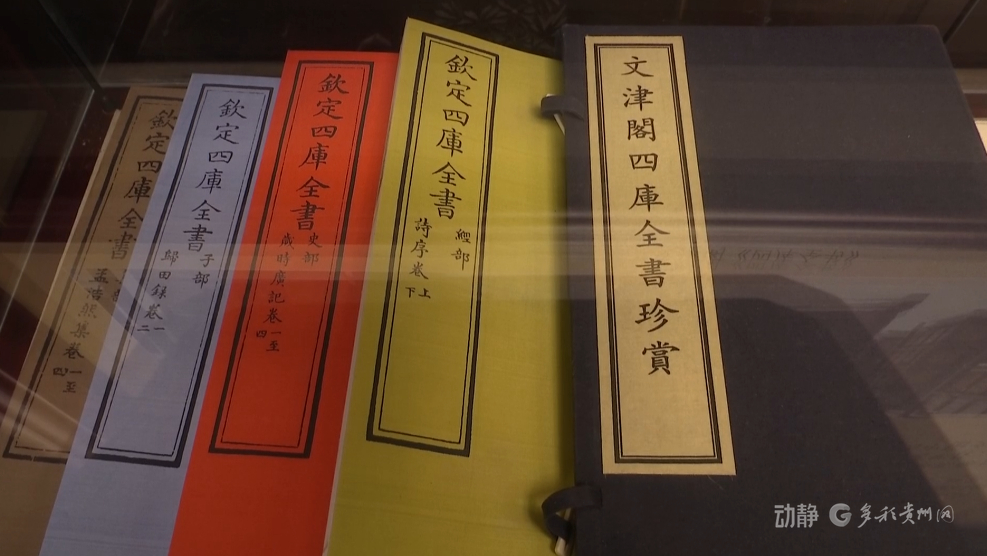 文津閣四庫全書珍賞
欽定四庫全書
經部
詩序卷上下
欽定四庫全書
史部
歲時廣記卷一至四
欽定四庫全書
子部
歸田錄卷一二
欽定四庫全書
孟浩然集卷一至四
动静
多彩贵州网